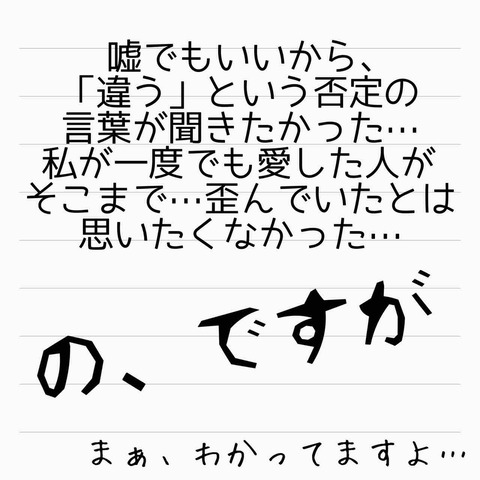 嘘でもいいから、
「違う」という否定の
言葉が聞きたかった…
私が一度でも愛した人が
そこまで…歪んでいたとは
思いたくなかった…
の、ですが
まぁ、わかってますよ…